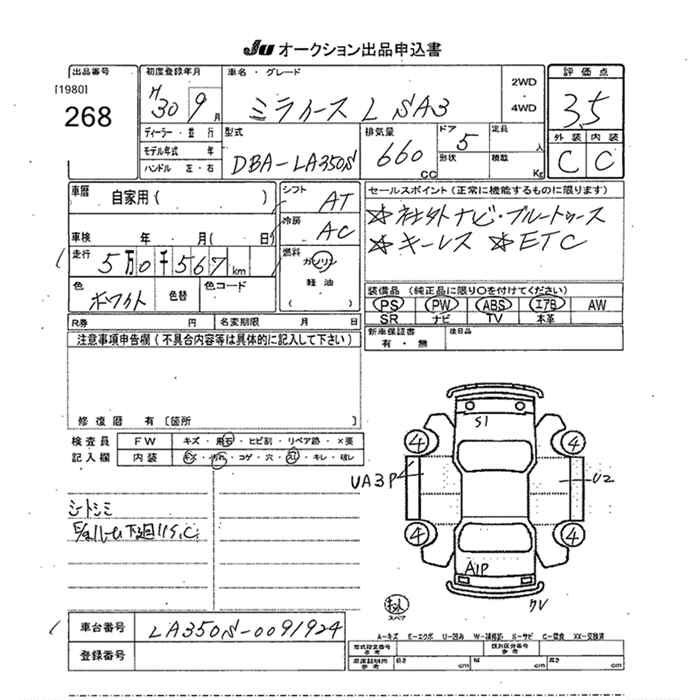 JU オークション出品申込書
出品番号
[1980]
268
初度登録年月
H30 9月
ディーラー・並行
モデル年式 年
ハンドル 左・右
車名・グレード
ミライース L SA3
2WD
・
4WD
評価点
3.5
型式
DBA-LA350S
排気量
660 CC
ドア 5
形状
定員 人
積載 Kg
外装 内装
C C
車歴 自家用( )
車検 年 月( 日)
走行 5万0千567km
色 ホワイト 色替 色コード
シフト AT
冷房 AC
燃料 ガソリン
軽油
( )
セールスポイント(正常に機能するものに限ります)
☆社外ナビ・ブルートゥース
☆キーレス ☆ETC
装備品 (純正品に限り○を付けてください)
PS PW ABS エアB AW
SR ナビ TV 本革
R券 円 名変期限 月 日
新車保証書 後日品
有・無
注意事項申告欄(不具合内容等は具体的に記入して下さい)
修復歴 有〔箇所 〕
検査員 FW キズ・飛石・ヒビ割・リペア跡・×要
記入欄 内装 キズ・汚れ・コゲ・穴・スリ・キレ・破レ
シートシミ
下廻りS,C
S1
4 4
UA3P U2
4 4
A1P
クV
スペア
車台番号 LA350S-0091924
登録番号
A-キズ E-エクボ U-凹み W-補修跡 S-サビ C-腐食 XX-交換済
型式指定番号 参考 類別区分番号 参考
車庫証明用 参考 長さ cm 幅 cm 高さ cm